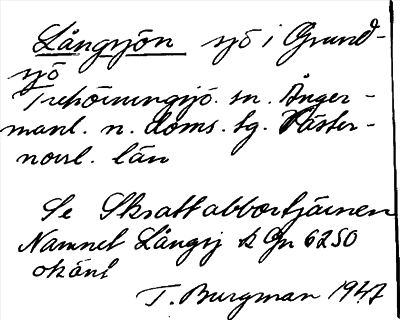 Långsjön sjö i Grund-
sjö
Trehörningsjö. sn. Ånger-
manl. n. doms. tg. Väster-
norrl. län
Se Skrattabborrtjärnen
Namnet Långsj k Gn 6250
okänt
T. Burgman 1947